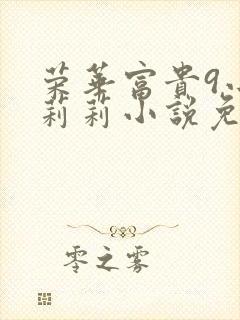 荣华富貴9.
莉莉小説免
零之雾